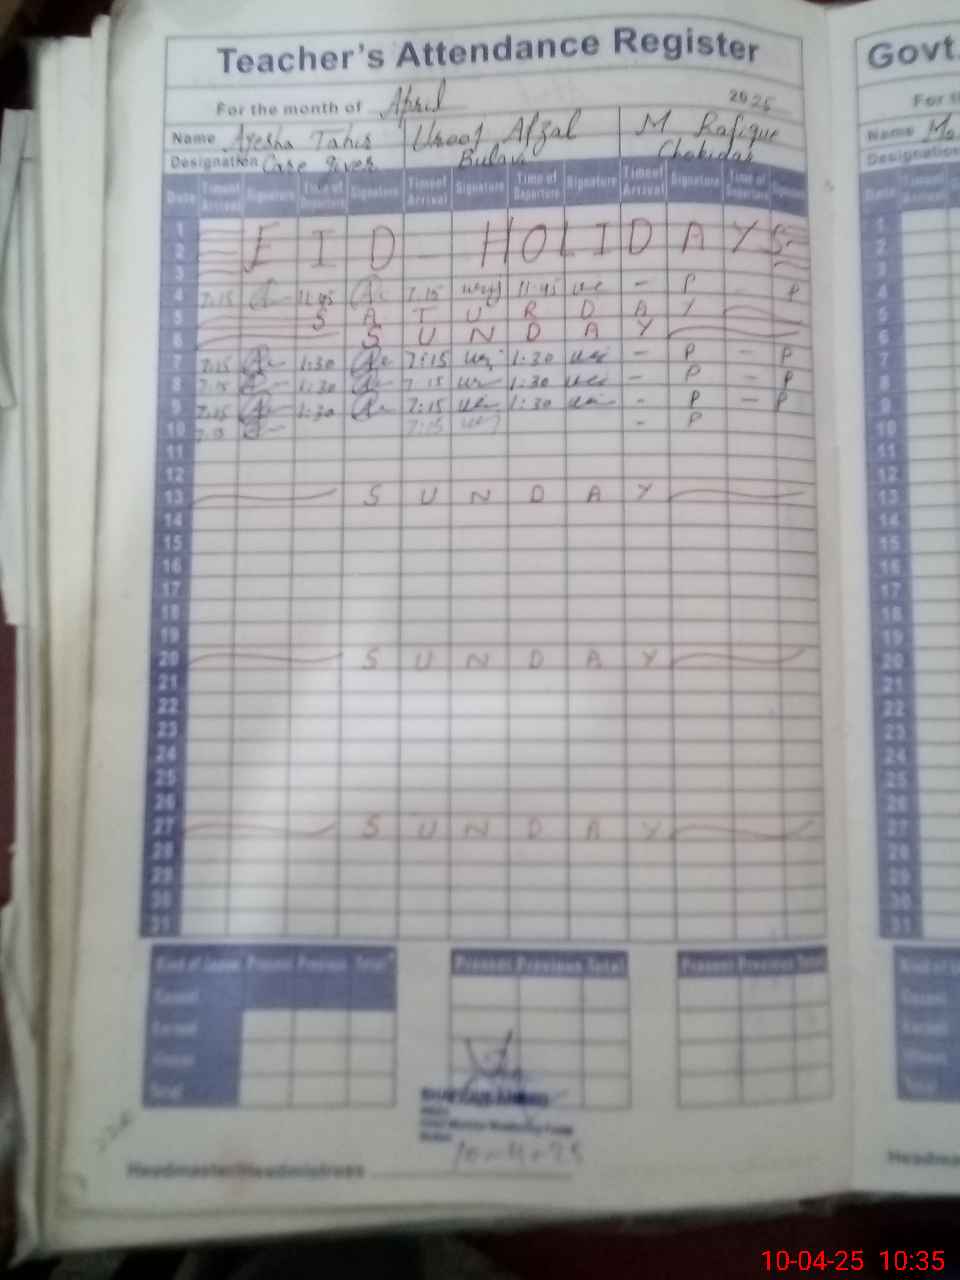 Teacher's Attendance Register
Govt.
For the month of April 2025
Name Ayesha Tahir Uroof Afzal M Rafique
Name
Designation Care Giver Bulava Chokidar
Designation
Date Time of Arrival Signature Time of Departure Signature Time of Arrival Signature Time of Departure Signature Time of Arrival Signature Time of Departure
1
2 EID HOLIDAYS
3
4 7.15 11:45 7.15 11:45 - P P
5 SATURDAY
6 SUNDAY
7 7:15 1:30 7:15 1:30 - P - P
8 7:15 1:30 7:15 1:30 - P - P
9 7:15 1:30 7:15 1:30 - P - P
10 7:15 7:15 - P
11
12
13 SUNDAY
14
15
16
17
18
19
20 SUNDAY
21
22
23
24
25
26
27 SUNDAY
28
29
30
31
Kind of Leave Present Previous Total Present Previous Total Present Previous Total
Casual
Earned
Total
10-4-25
Headmaster/Headmistress
10-04-25 10:35